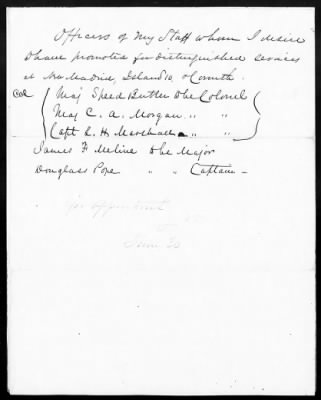 Officers of my Staff whom I desire
to have promoted for distinguished services
at New Madrid, Island 10 & Corinth.
Col Maj Speed Butler to be Colonel
Maj C. A. Morgan " "
Capt L. H. Marshall " "
James F Meline to be Major
Douglass Pope " " Captain
for appointment